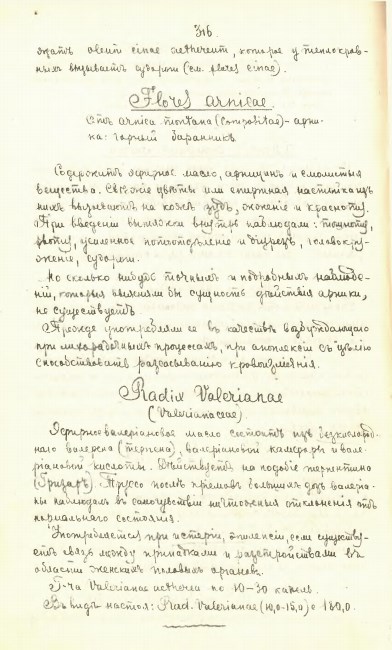 316.
жатъ oleum cinae aethereum, которое у теплокров-
ныхъ вызываетъ судороги (см. flores cinae).
Flores arnicae.
Отъ arnica montana (Compositae) - арни-
ка: горный баранникъ.
Содержитъ эфирное масло, арницинъ и смолистыя
вещества. Свѣжіе цвѣты или спиртная настойка изъ
нихъ вызываютъ на кожѣ зудъ, жженіе и красноту.
При введеніи вытяжки внутрь наблюдали: тошноту,
рвоту, усиленное потоотдѣленіе и діурезъ, головокру-
женіе, судороги.
Но сколько нибудь точныхъ и подробныхъ наблюде-
ній, которыя выяснили бы сущность дѣйствія арники,
не существуетъ.
Прежде употребляли ее въ качествѣ возбуждающаго
при лихорадочныхъ процессахъ, при апоплексіи съ цѣлію
способствовать разсасыванію кровоизліянія.
Radix Valerianae
(Valerianaceae)
Эфирное валеріановое масло состоитъ изъ безкислород-
наго валерена (терпена), валеріановой камфоры и вале-
ріановой кислоты. Дѣйствуетъ на подобіе терпентина
(Гризаръ). Груссо послѣ пріемовъ большихъ дозъ валеріа-
ны наблюдалъ въ самочувствіи ничтожныя отклоненія отъ
нормальнаго состоянія.
Употребляется при истеріи, эпилепсіи, если существу-
етъ связь между припадками и разстройствами въ
области женскихъ половыхъ органовъ.
T-ra Valerianae aetherea по 10-30 капель.
Въ видѣ настоя: Rad. Valerianae (10,0-15,0) с 180,0.